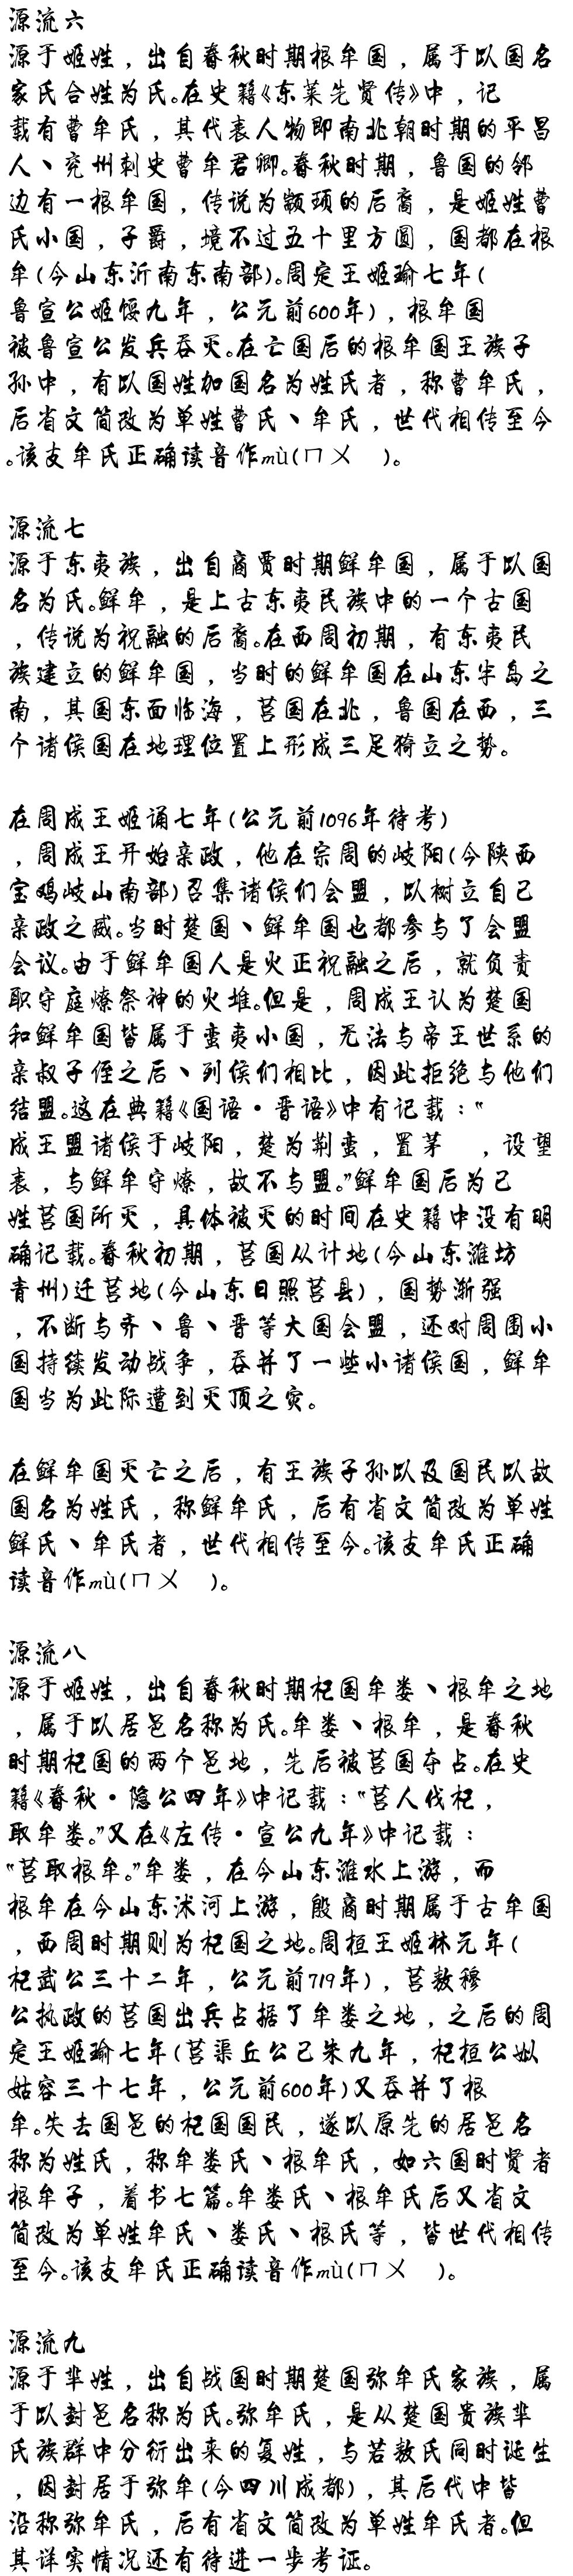 源流六
源于姬姓，出自春秋时期根牟国，属于以国名
家氏合姓为氏。在史籍《东莱先贤传》中，记
载有曹牟氏，其代表人物即南北朝时期的平昌
人、兖州刺史曹牟君卿。春秋时期，鲁国的邻
边有一根牟国，传说为颛顼的后裔，是姬姓曹
氏小国，子爵，境不过五十里方圆，国都在根
牟(今山东沂南东南部)。周定王姬瑜七年(
鲁宣公姬馁九年，公元前600年)，根牟国
被鲁宣公发兵吞灭。在亡国后的根牟国王族子
孙中，有以国姓加国名为姓氏者，称曹牟氏，
后省文简改为单姓曹氏、牟氏，世代相传至今
。该支牟氏正确读音作mù(ㄇㄨ　)。
源流七
源于东夷族，出自商贾时期鲜牟国，属于以国
名为氏。鲜牟，是上古东夷民族中的一个古国
，传说为祝融的后裔。在西周初期，有东夷民
族建立的鲜牟国，当时的鲜牟国在山东半岛之
南，其国东面临海，莒国在北，鲁国在西，三
个诸侯国在地理位置上形成三足犄立之势。
在周成王姬诵七年(公元前1096年待考)
，周成王开始亲政，他在宗周的岐阳(今陕西
宝鸡岐山南部)召集诸侯们会盟，以树立自己
亲政之威。当时楚国、鲜牟国也都参与了会盟
会议。由于鲜牟国人是火正祝融之后，就负责
职守庭燎祭神的火堆。但是，周成王认为楚国
和鲜牟国皆属于蛮夷小国，无法与帝王世系的
亲叔子侄之后、列侯们相比，因此拒绝与他们
结盟。这在典籍《国语·晋语》中有记载："
成王盟诸侯于岐阳，楚为荆蛮，置茅　，设望
表，与鲜牟守燎，故不与盟。"鲜牟国后为己
姓莒国所灭，具体被灭的时间在史籍中没有明
确记载。春秋初期，莒国从计地(今山东潍坊
青州)迁莒地(今山东日照莒县)，国势渐强
，不断与齐、鲁、晋等大国会盟，还对周围小
国持续发动战争，吞并了一些小诸侯国，鲜牟
国当为此际遭到灭顶之灾。
在鲜牟国灭亡之后，有王族子孙以及国民以故
国名为姓氏，称鲜牟氏，后有省文简改为单姓
鲜氏、牟氏者，世代相传至今。该支牟氏正确
读音作mù(ㄇㄨ　)。
源流八
源于姬姓，出自春秋时期杞国牟娄、根牟之地
，属于以居邑名称为氏。牟娄、根牟，是春秋
时期杞国的两个邑地，先后被莒国夺占。在史
籍《春秋·隐公四年》中记载："莒人伐杞，
取牟娄。"又在《左传·宣公九年》中记载：
"莒取根牟。"牟娄，在今山东潍水上游，而
根牟在今山东沭河上游，殷商时期属于古牟国
，西周时期则为杞国之地。周桓王姬林元年(
杞武公三十二年，公元前719年)，莒敖穆
公执政的莒国出兵占据了牟娄之地，之后的周
定王姬瑜七年(莒渠丘公己朱九年，杞桓公姒
姑容三十七年，公元前600年)又吞并了根
牟。失去国邑的杞国国民，遂以原先的居邑名
称为姓氏，称牟娄氏、根牟氏，如六国时贤者
根牟子，着书七篇。牟娄氏、根牟氏后又省文
简改为单姓牟氏、娄氏、根氏等，皆世代相传
至今。该支牟氏正确读音作mù(ㄇㄨ　)。
源流九
源于芈姓，出自战国时期楚国弥牟氏家族，属
于以封邑名称为氏。弥牟氏，是从楚国贵族芈
氏族群中分衍出来的复姓，与若敖氏同时诞生
，因封居于弥牟(今四川成都)，其后代中皆
沿称弥牟氏，后有省文简改为单姓牟氏者。但
其详实情况还有待进一步考证。